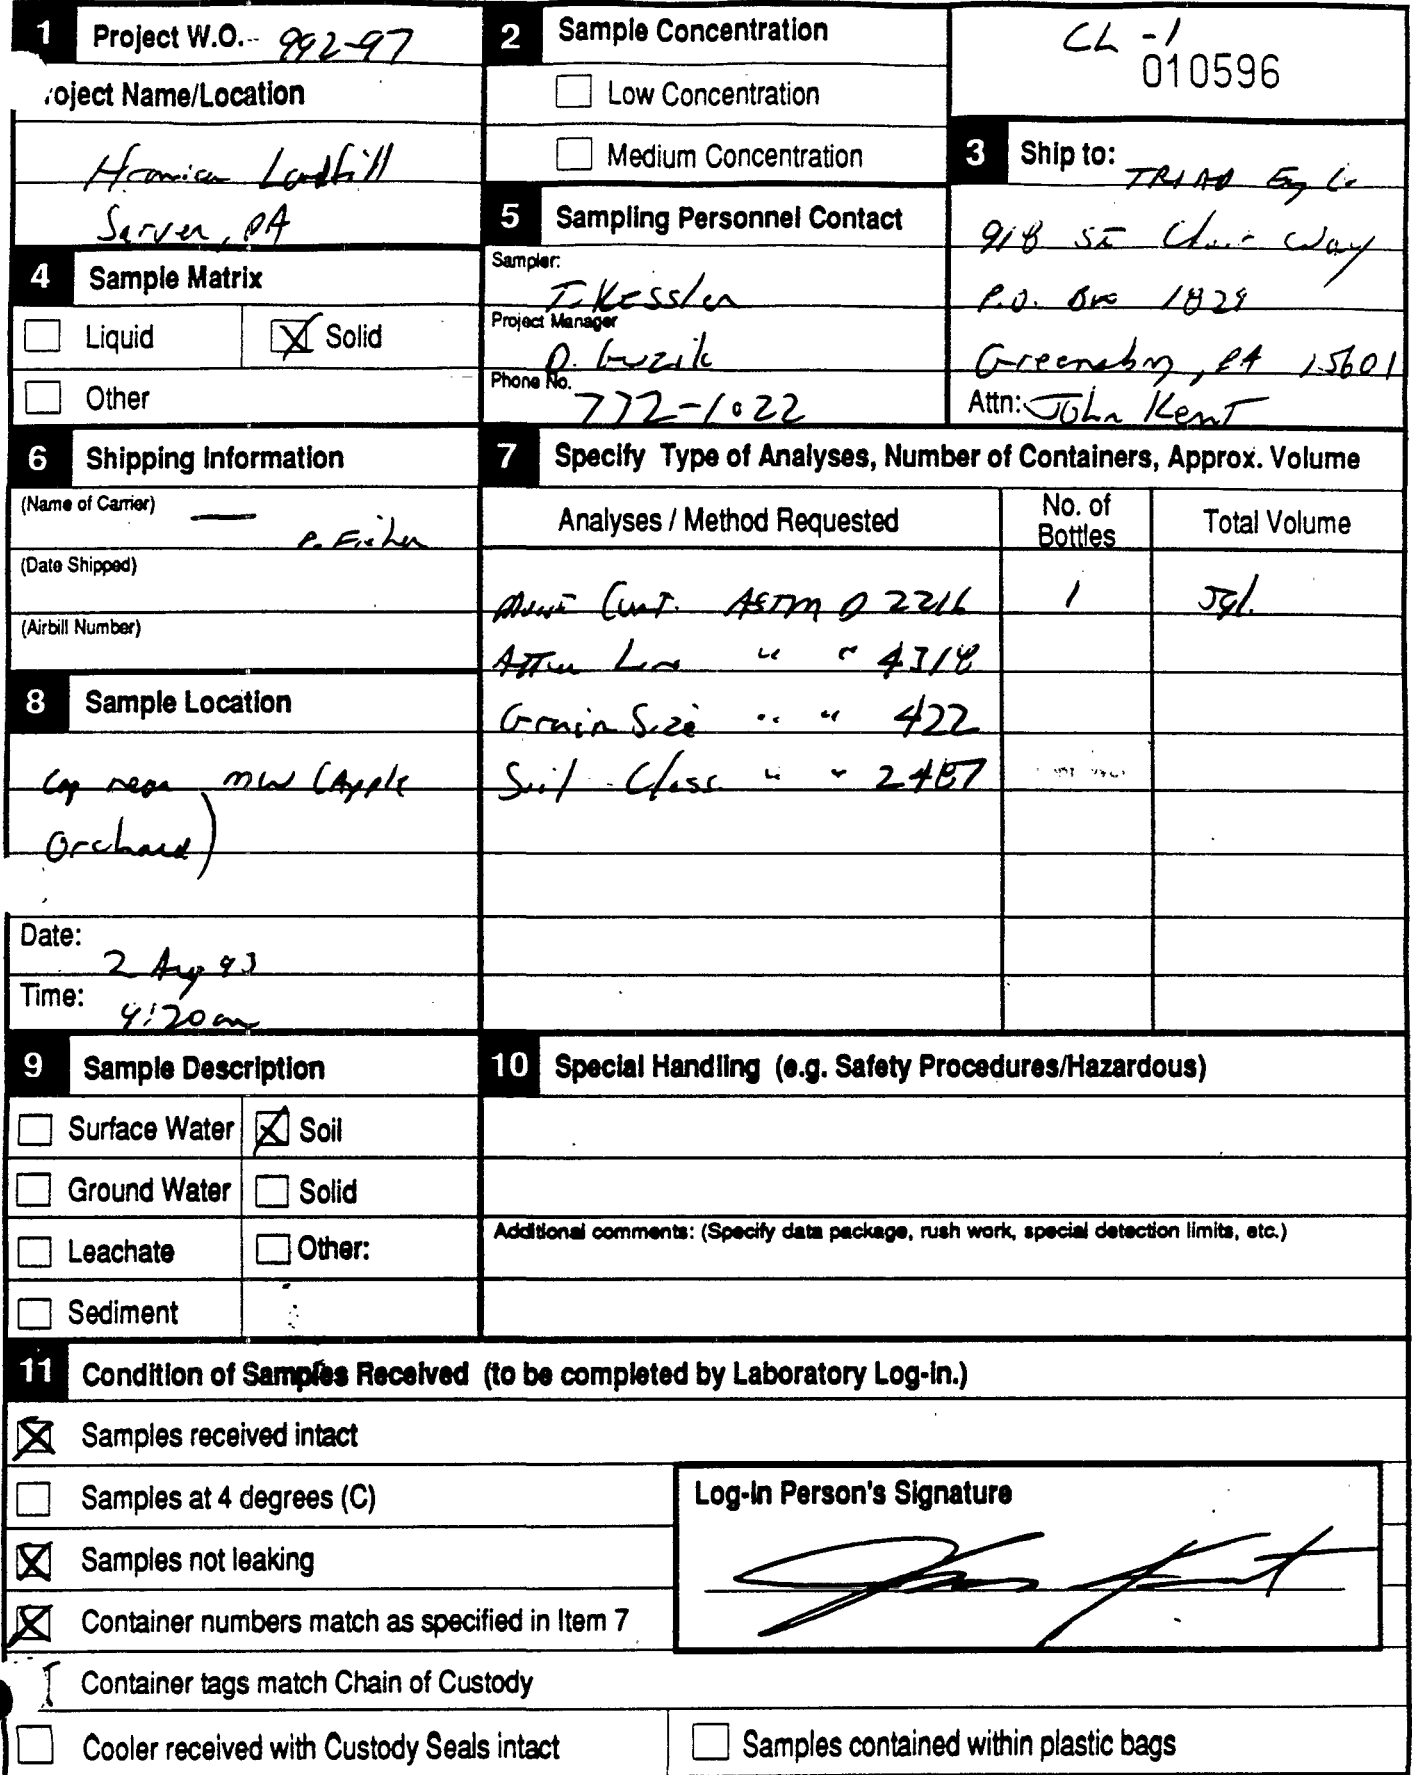 1 Project W.O. 992-97
roject Name/Location
Landfill
Sarver, PA
2 Sample Concentration
Low Concentration
Medium Concentration
CL -1
010596
3 Ship to: TRIAD Eng
918 St. Clair Way
P.O. Box 1829
Greensburg, PA 15601
Attn: John Kent
4 Sample Matrix
Liquid
Solid
Other
5 Sampling Personnel Contact
Sampler:
T. Kessler
Project Manager
D. Guzik
Phone No.
772-1022
6 Shipping Information
(Name of Carrier)
P. Fisher
(Date Shipped)
(Airbill Number)
7 Specify Type of Analyses, Number of Containers, Approx. Volume
Analyses / Method Requested
No. of
Bottles
Total Volume
Cont. ASTM D 2216 1 5gl.
" " 4318
Grain Size " " 422
Soil Class. " " 2487
8 Sample Location
Cap near MW (Apple
Orchard)
Date:
2 Aug 93
Time:
9:20am
9 Sample Description
Surface Water
Soil
Ground Water
Solid
Leachate
Other:
Sediment
10 Special Handling (e.g. Safety Procedures/Hazardous)
Additional comments: (Specify data package, rush work, special detection limits, etc.)
11 Condition of Samples Received (to be completed by Laboratory Log-in.)
Samples received intact
Samples at 4 degrees (C)
Samples not leaking
Container numbers match as specified in Item 7
Container tags match Chain of Custody
Cooler received with Custody Seals intact
Log-in Person's Signature
Samples contained within plastic bags